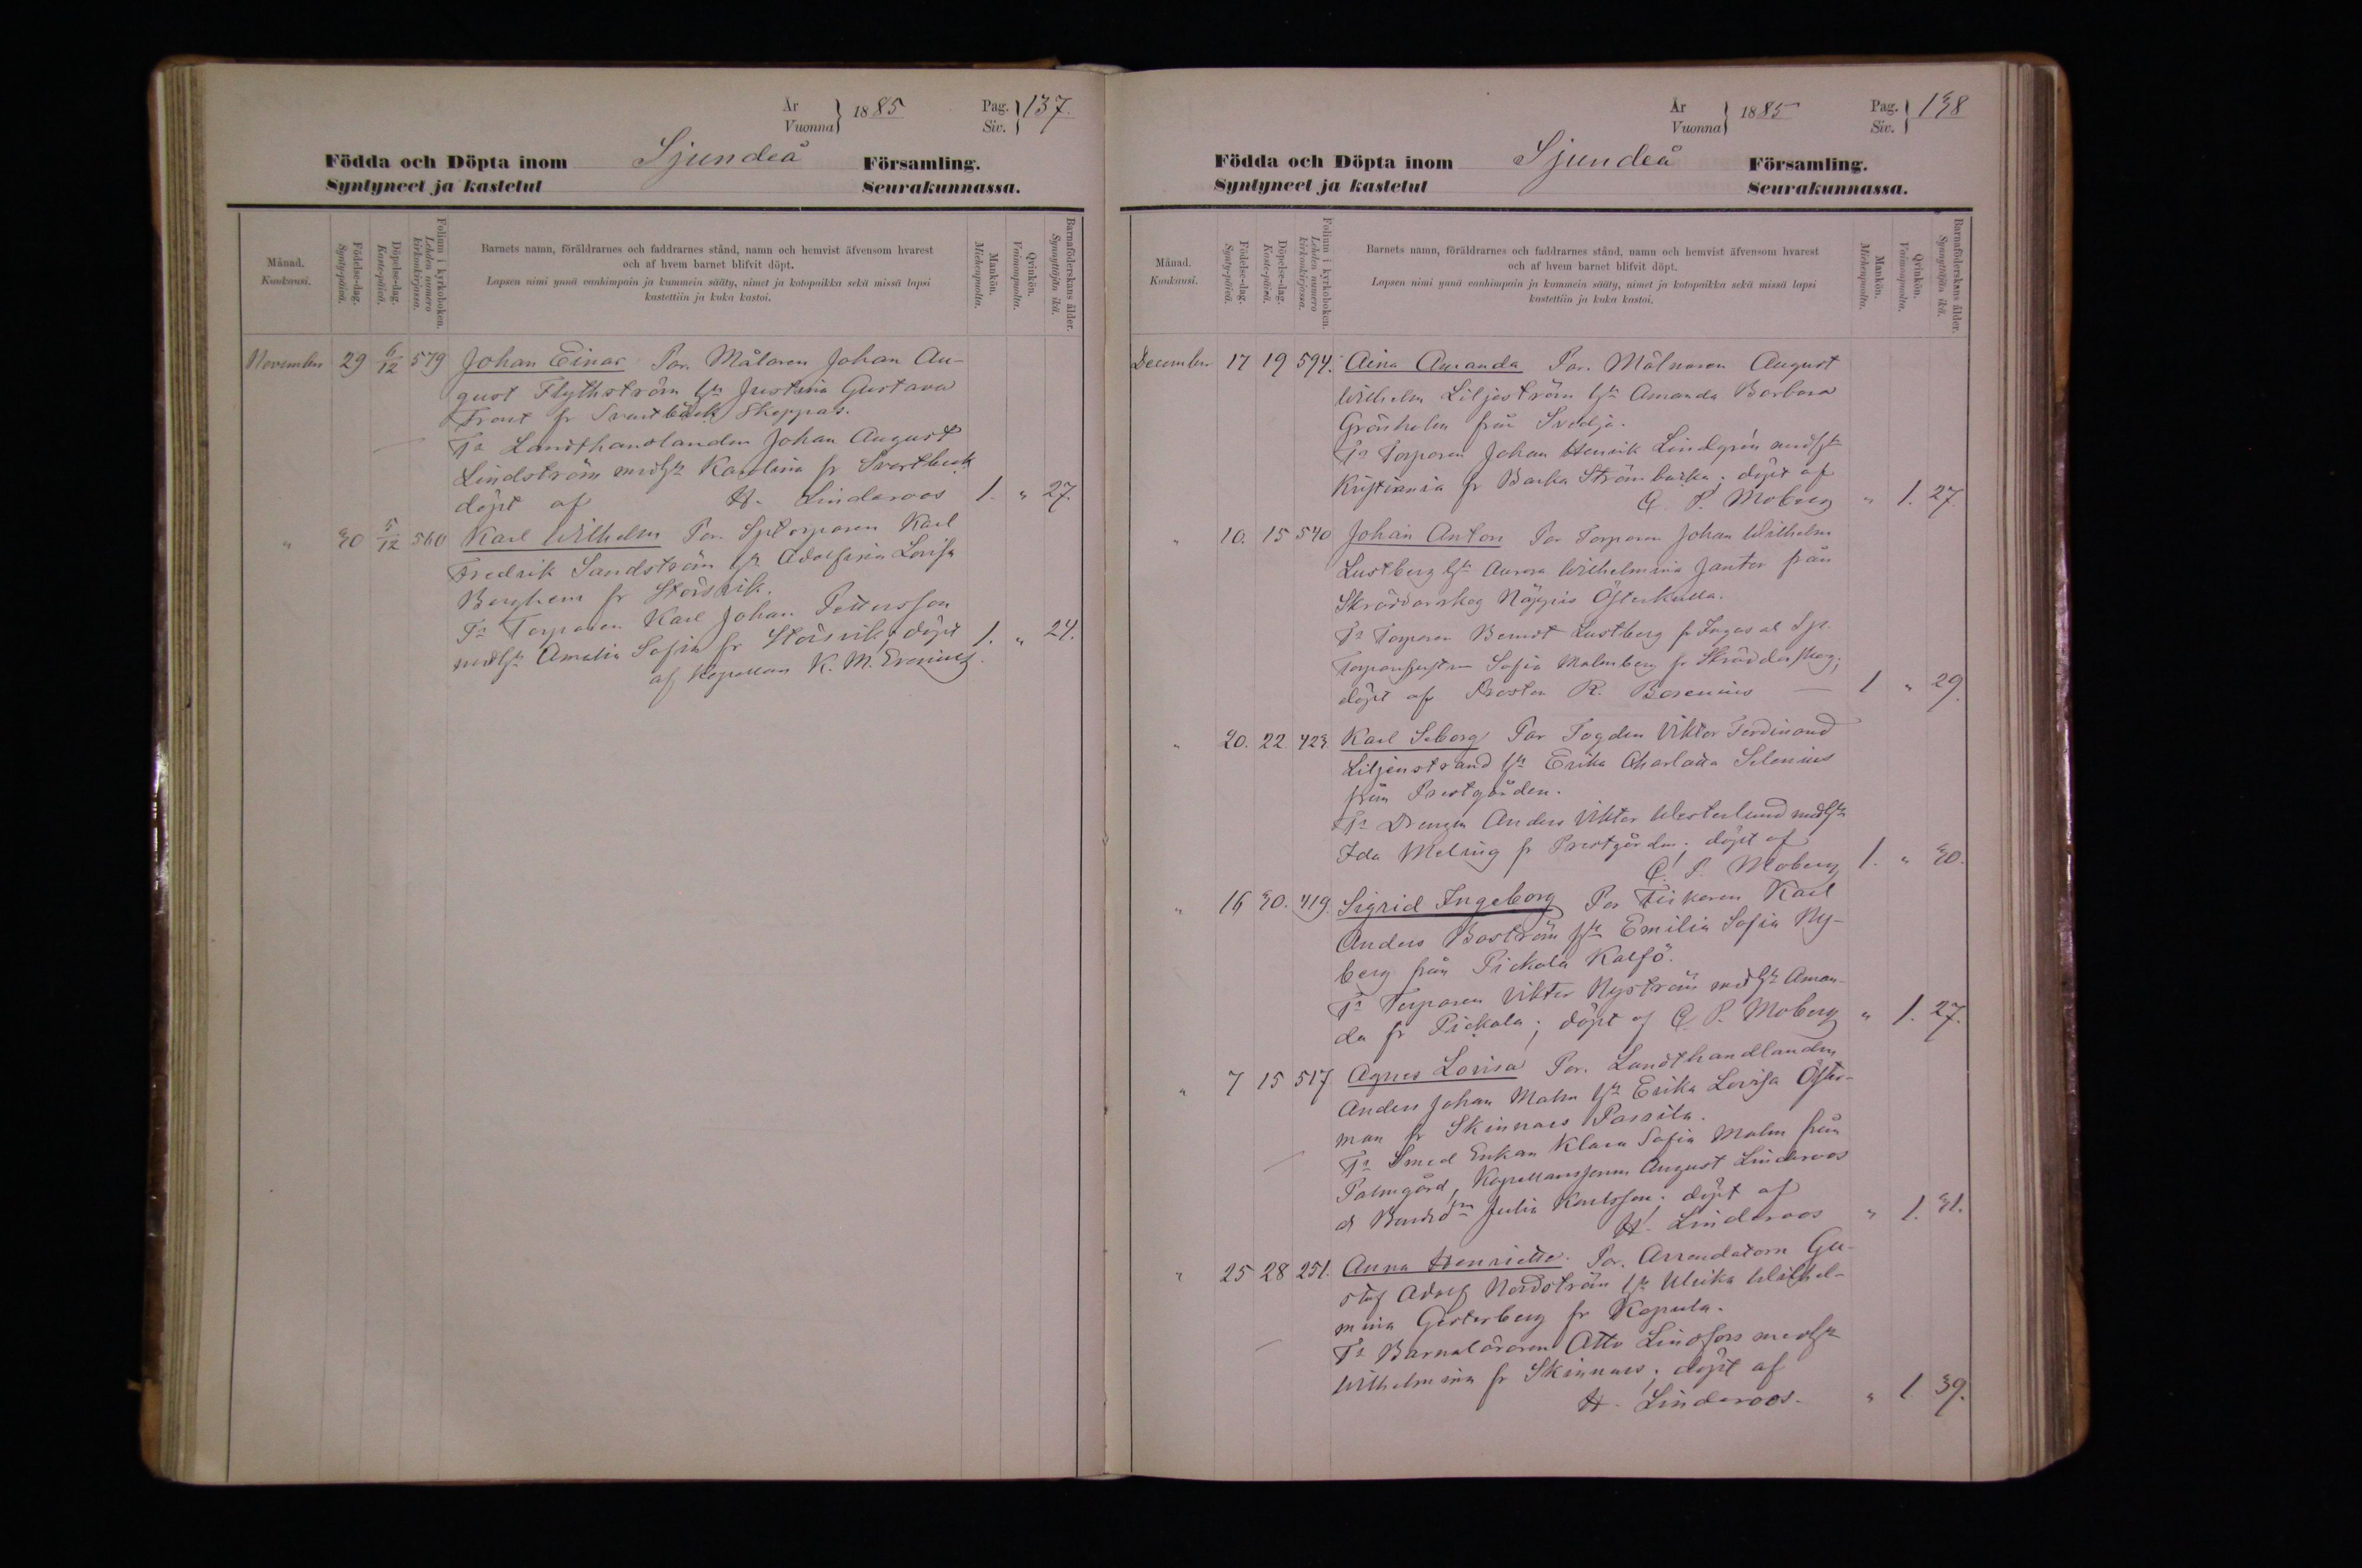 År
Vuonna
1885
Pag.
Siv.
137.
Födda och Döpta inom Sjundeå Församling.
Syntyneet ja kastetut Seurakunnassa.
Månad.
Kuukausi.
Födelse-dag.
Synty-päivä.
Döpelse-dag.
Kaste-päivä.
Folium i kyrkoboken.
Lehden numero
kirkonkirjassa.
Barnets namn, föräldrarnes och faddrarnes stånd, namn och hemvist äfvensom hvarest
och af hvem barnet blifvit döpt.
Lapsen nimi ynnä vanhimpain ja kummein sääty, nimet ja kotopaikka sekä missä lapsi
kastettiin ja kuka kastoi.
Mankön.
Miehenpuolta.
Qvinkön.
Vaimonpuolta.
Barnaföderskans ålder.
Synnyttäjän ikä.
November 29 6/12 579 Johan Einar Par. Målaren Johan Au-
gust Flythström hu Justina Gustava
Front fr Svartbäck Skeppas.
Fr Landthandlanden Johan August
Lindström med hu Karolina fr Svartbeck
döpt af H. Linderoos 1. " 27.
" 30 5/12 560 Karl Wilhelm Par. Sptorparen Karl
Fredrik Sandström hu Adolfina Lovisa
Berghem fr Störsvik.
Fr Torparen Karl Johan Pettersson
med hu Amalia Sofia fr Störsvik; döpt 1. " 24.
af Kapellan K. M.
År
Vuonna
1885
Pag.
Siv.
138
Födda och Döpta inom Sjundeå Församling.
Syntyneet ja kastetut Seurakunnassa.
Månad.
Kuukausi.
Födelse-dag.
Synty-päivä.
Döpelse-dag.
Kaste-päivä.
Folium i kyrkoboken.
Lehden numero
kirkonkirjassa.
Barnets namn, föräldrarnes och faddrarnes stånd, namn och hemvist äfvensom hvarest
och af hvem barnet blifvit döpt.
Lapsen nimi ynnä vanhimpain ja kummein sääty, nimet ja kotopaikka sekä missä lapsi
kastettiin ja kuka kastoi.
Mankön.
Miehenpuolta.
Qvinkön.
Vaimonpuolta.
Barnaföderskans ålder.
Synnyttäjän ikä.
December 17 19 594. Aina Amanda Par. Mölnaren August
Wilhelm Liljeström hu Amanda Barbara
Grönholm från Svedja.
Fr Torparen Johan Henrik Lindgrén med hu
Kristiania fr Backa Strömbacka; döpt af
G. P. Moberg " 1. 27.
" 10. 15 540 Johan Anton Par Torparen Johan Wilhelm
Lustberg hu Aurora Wilhelmina Janter från
Skräddarskog Näppis Österkulla.
Fr Torparen Berndt Lustberg fr Ingas
Sofia Malmberg fr Skräddarskog;
döpt af Prosten R. Borenius 1 " 29.
" 20. 22 423. Karl Seborg Par Fogden Viktor Ferdinand
Liljenstrand hu Erika Charlotta Selenius
från Prestgården.
Fr Drengen Anders Viktor Westerlund med hu
Ida Meling fr Prestgården; döpt af
G. P. Moberg 1. " 30.
" 16 30. 419. Sigrid Ingeborg Par Fiskaren Karl
Anders Boström hu Emilia Sofia Ny-
berg från Pickala Kalfö.
Fr Torparen Viktor Nyström med hu Aman-
da fr Pickala; döpt af G. P. Moberg " 1. 27.
" 7 15 517 Agnes Lovisa Par. Landthandlanden
Anders Johan Malm hu Erika Lovisa Öster-
man fr Skinnars Passila.
Fr Smed Enkan Klara Sofia Malm från
Palmgård, August Linderoos
Julia Karlsson; döpt af
H. Linderoos " 1. 31.
" 25 28 251. Anna Henriette. Par. Arrendatorn Gu-
staf Adolf Nordström hu Ulrika Wilhel-
mina Gesterberg fr Kopula.
Fr Barnaläraren Otto Lindfors med hu
Wilhelmina fr Skinnars; döpt af
H. Linderoos. " 1 39.